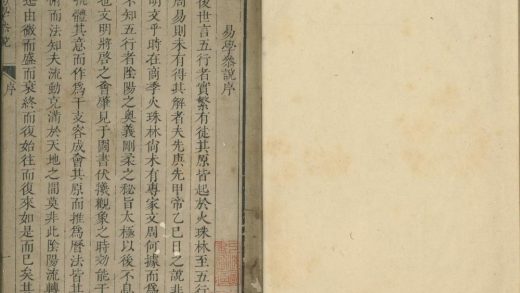 易學叅說序
後世言五行者實繁有徒其原皆起於火珠林至五行
周易則未有得其解者夫先庚先甲帝乙巳日之說非
明文乎時在商季火珠林尙未有專家文周何據而爲
不知五行者陰陽之奧義剛柔之秘旨太極以後不息
也文明將啓之會肇見于圖書伏羲觀象之時効能于
體其意而作爲干支容成會其原而推爲曆法皆其
俯而法知夫流動充滿於天地之間莫非此陰陽流轉
由微而盛而衰終而復始往而復來如是而已矣其
易學叅說
序
一